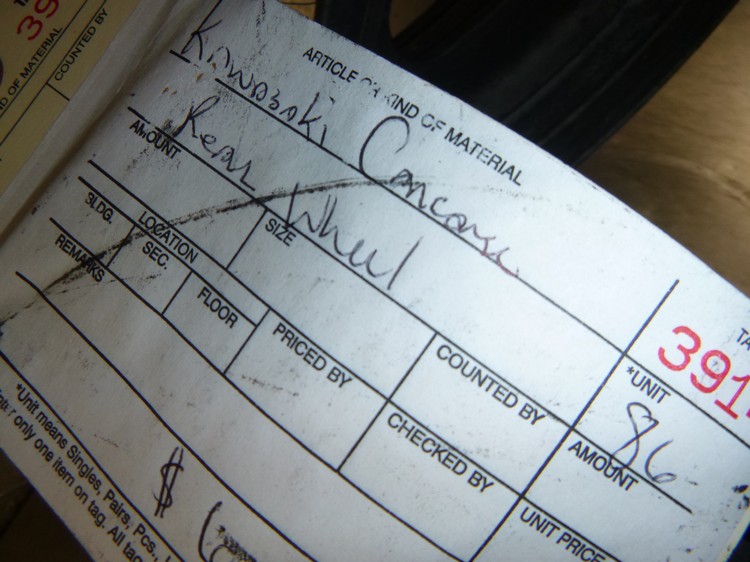 ARTICLE OR KIND OF MATERIAL
Kawasaki Concours
Rear Wheel
AMOUNT
SIZE
*UNIT
391
86
BLDG.
LOCATION
SEC.
FLOOR
PRICED BY
COUNTED BY
AMOUNT
REMARKS
CHECKED BY
UNIT PRICE
$
*Unit means Singles, Pairs, Pcs.,
only one item on tag. All
OF MATERIAL
COUNTED BY
39